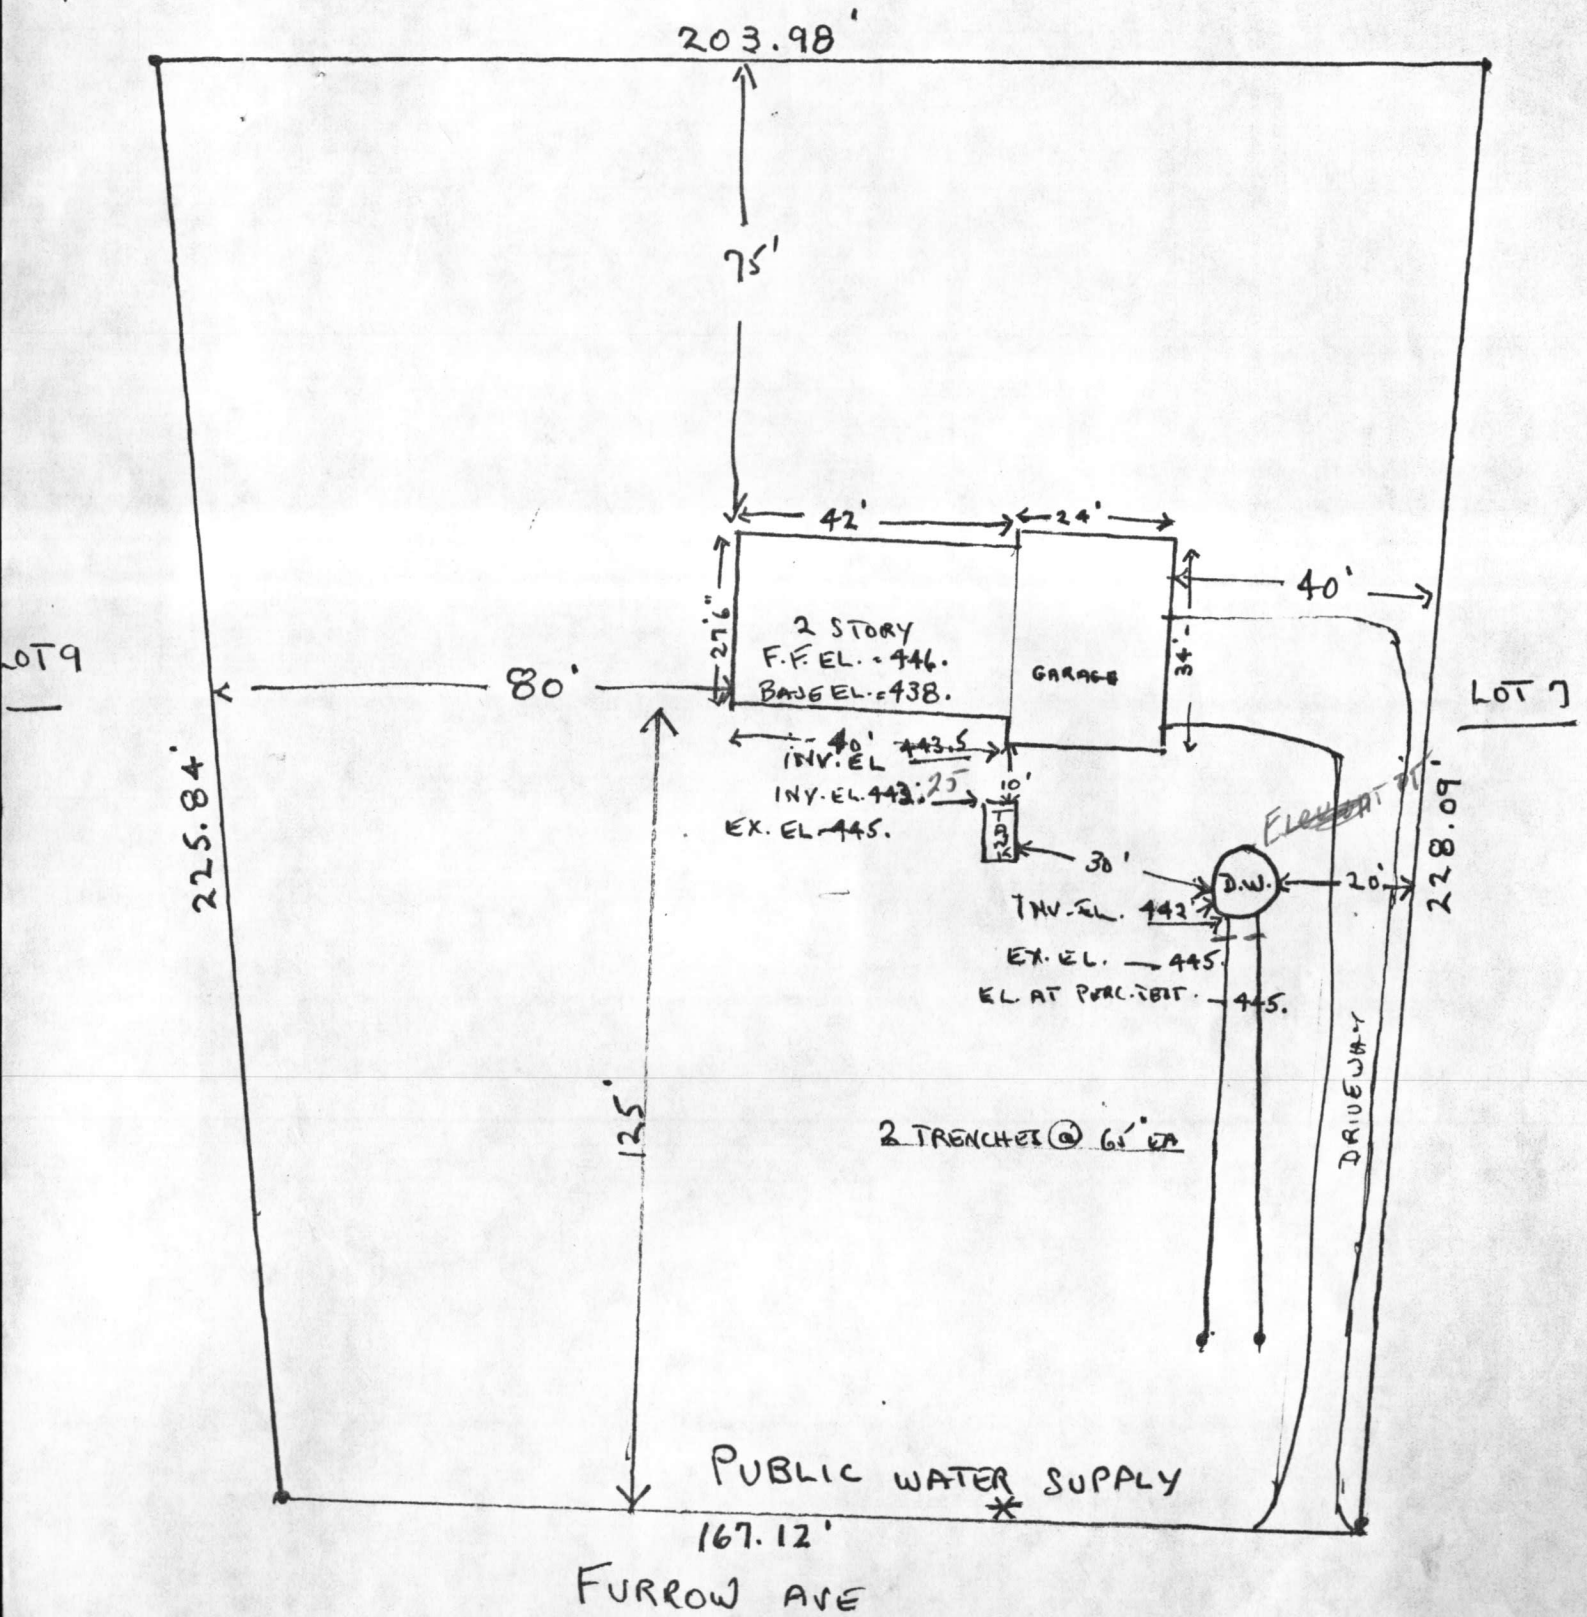 203.98'
75'
42'
24'
40'
27'6"
2 STORY
F.F. EL. = 446.
BASE EL. = 438.
GARAGE
34'
LOT 9
80'
LOT 7
40'
INV. EL 443.5
INV. EL. 442.25
EX. EL - 445.
225.84'
228.09'
30'
D.W.
20'
INV. EL. 442'
EX. EL. - 445.
EL. AT PERC. TEST. - 445.
125'
2 TRENCHES @ 65' EA
DRIVEWAY
PUBLIC WATER SUPPLY
167.12'
FURROW AVE